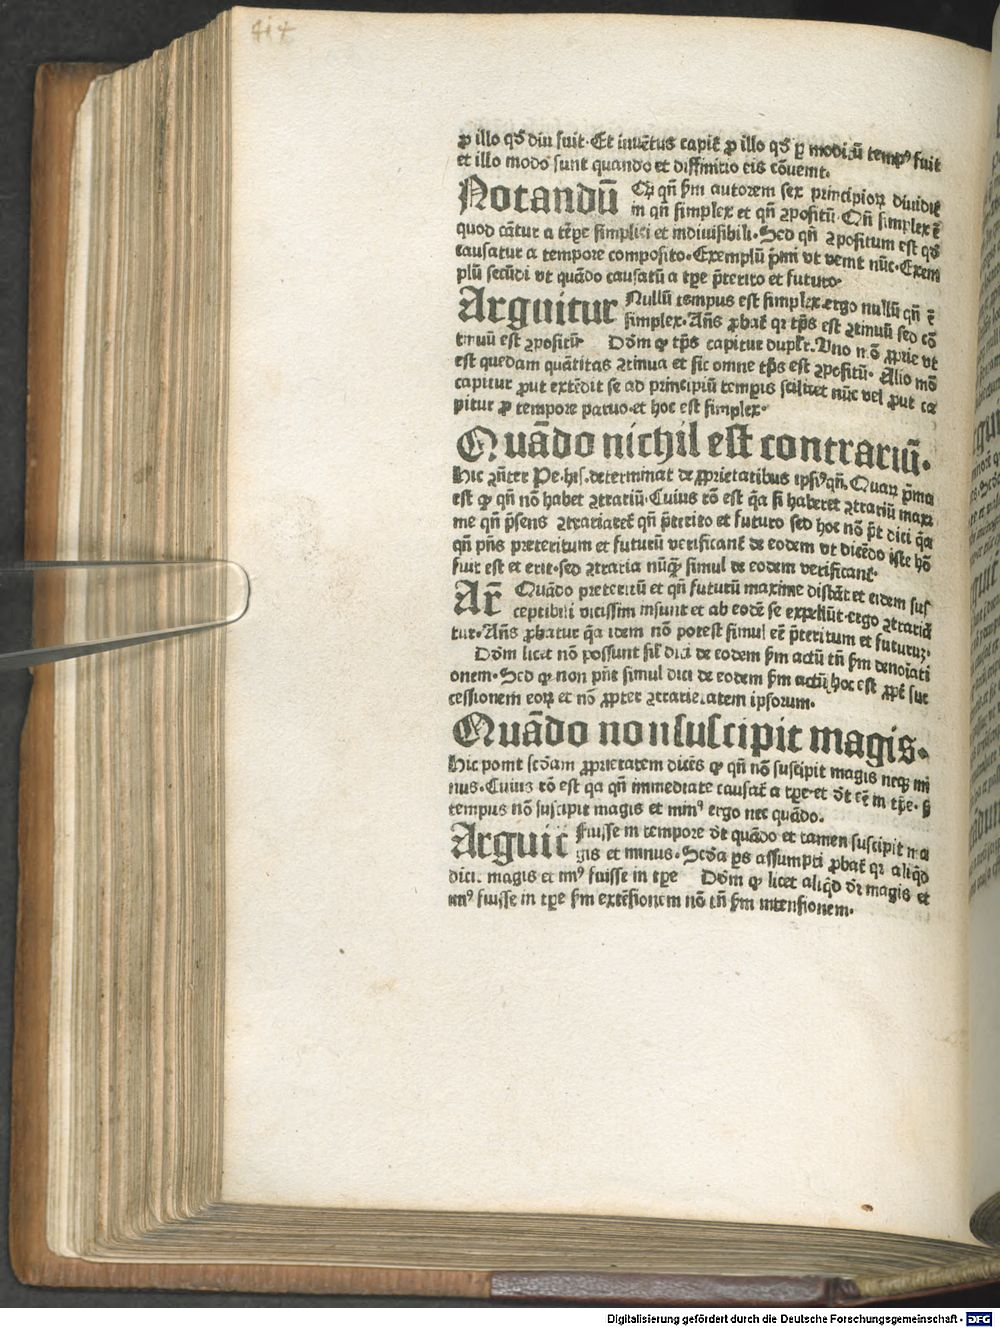 414
ꝓ illo qḋ diu fuit. Et inuētus capit̄ ꝓ illo qḋ ꝑ modicū tempꝰ fuit
et illo modo sunt quando et diffinitio eis cōuenit.
Notandū Qꝫ qñ ẜm autorem sex principioꝝ diuidit̄
in qñ simplex et qñ ꝯpositū. Qñ simplex ē
quod cāt̄ur a tēpe simplici et indiuisibili. Sed qñ ꝯpositum est qḋ
causatur a tempore composito. Exemplū p̄mi vt venit nūc. Exem
plū secūdi vt quādo causatū a tꝑe p̄terito et futuro.
Arguitur Nullū tempus est simplex ergo nullū qñ ē
simplex. Añs ꝓbat̄ qꝛ tp̄s est ꝯtinuū sed cō
tinuū est ꝯpositū Dōm ꝙ tp̄s capitur duplr̄. Vno mō ꝓprie vt
est quedam quātitas ꝯtinua et sic omne tp̄s est ꝯpositū. Alio mō
capitur ꝓut extēdit se ad principiū tempis scilicet nūc vel ꝓut ca
pitur ꝓ tempore paruo et hoc est simplex.
Quādo nichil est contrariū.
Hic ꝯñter Pe. his. determinat de ꝓprietatibus ipsiꝰ qñ. Quaꝝ p̄ma
est ꝙ qñ nō habet ꝯtrariū. Cuius rō est q̄a si haberet ꝯtrariū maxi
me qñ p̄sens ꝯtrariaret̄ qñ p̄terito et futuro sed hoc nō p̄t dici q̄a
qñ p̄ns preteritum et futurū verificant̄ de eodem vt dicēdo iste hō
fuit est et erit. sed ꝯtraria nūꝙ̄ simul de eodem verificant̄.
Ar̄ Quādo preteritū et qñ futurū maxime distāt et eidem sus
ceptibili vicissim insunt et ab eodē se expellūt. ergo ꝯtrariā
tur. Añs ꝓbatur q̄a idem nō potest simul eē p̄teritum et futurū.
Dōm licet nō possunt sil̄ dici de eodem ẜm actū tñ ẜm denoīati
onem. Sed ꝙ non p̄nt simul dici de eodem ẜm actū hoc est ꝓpt̄ suc
cessionem eoꝝ et nō ꝓpter ꝯtrarietatem ipsorum.
Quādo non suscipit magis.
Hic ponit scḋam ꝓprietatem dicēs ꝙ qñ nō suscipit magis neqꝫ mi
nus. Cuius rō est qa qñ immediate causat̄ a tꝑe et dt̄ eē in tꝑe. ß
tempus nō suscipit magis et minꝰ ergo nec quādo.
Arguit̄ Fuisse in tempore dt̄ quādo et tamen suscipit ma
gis et minus. Scḋa ps assumpti ꝓbat̄ qꝛ aliqd̄
dicit̄ magis et minꝰ fuisse in tꝑe Dōm ꝙ licet aliqd̄ dr̄ magis et
minꝰ fuisse in tꝑe ẜm extēsionem nō tñ ẜm intensionem.
Digitalisierung gefördert durch die Deutsche Forschungsgemeinschaft - DFG